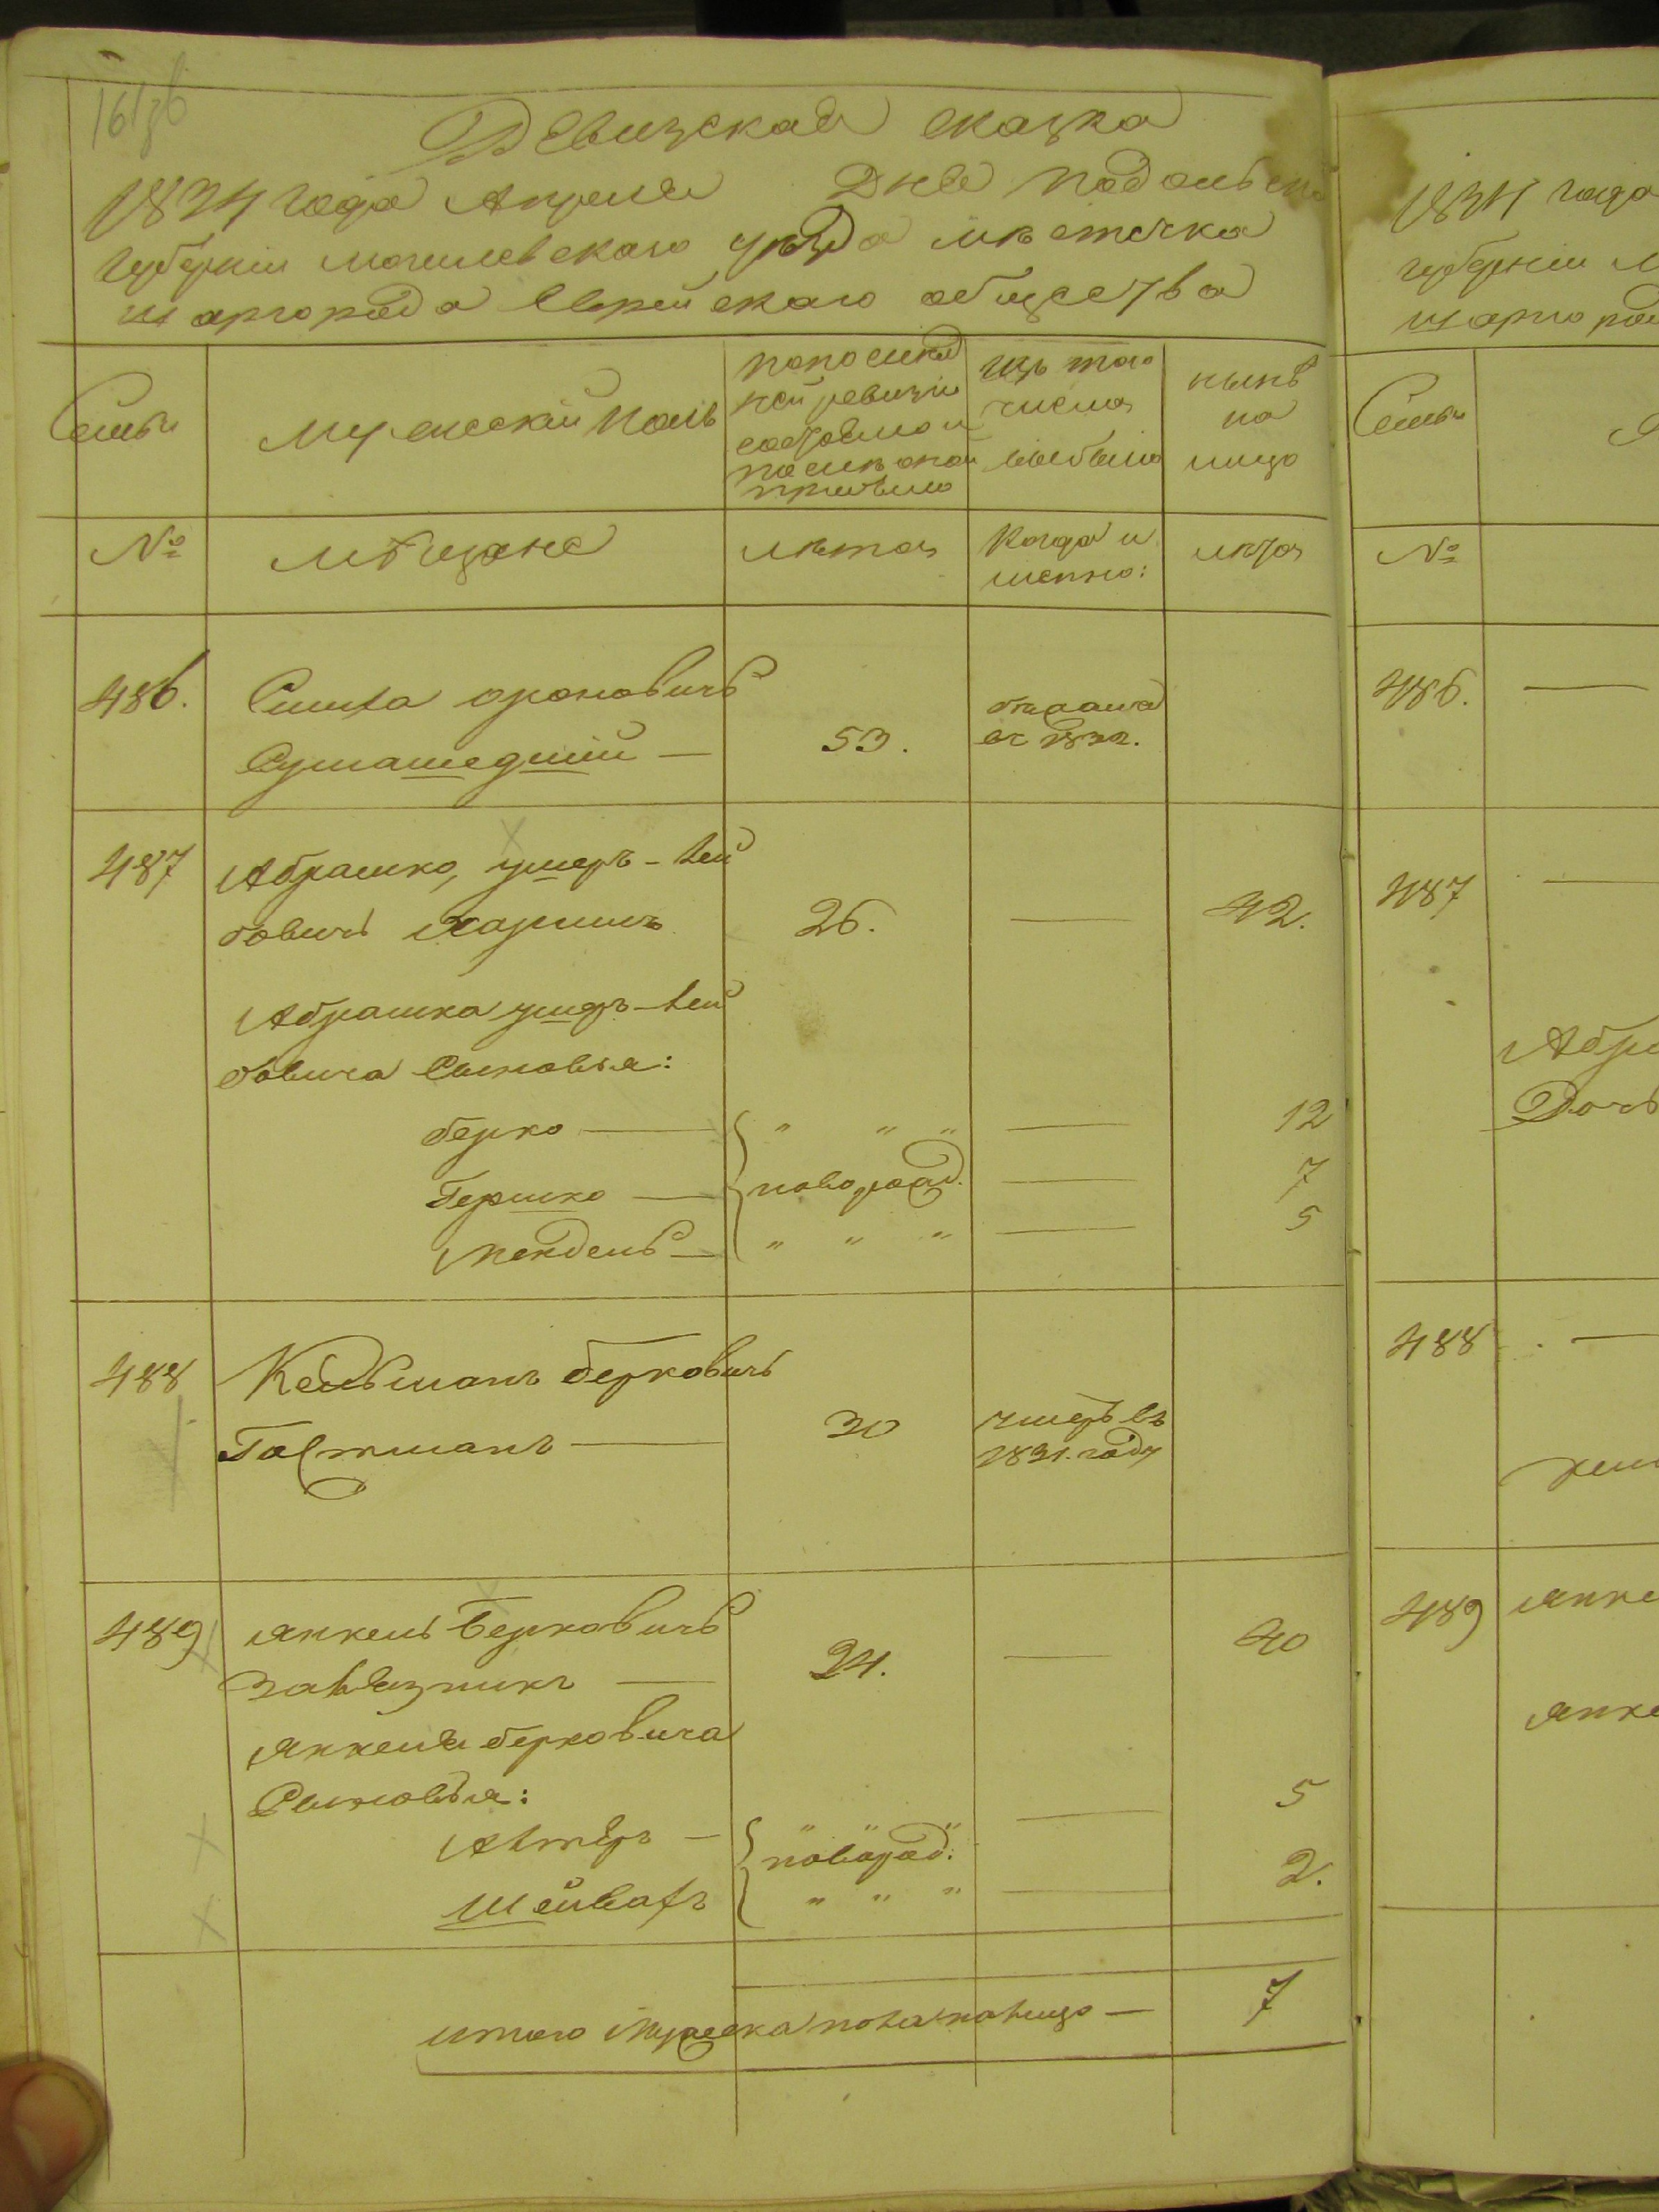 Ревизская сказка
1834 года Апреля Дня Подольской
губернии могилевскаго уѣзда мѣстечка
шаргорода Еврейскаго общества
Семьи
мужескій полъ
по послед
ней ревизіи
состояло и
после оной
прибыло
Изъ того
числа
выбыло
нынѣ
на
лицо
№
мѣщане
лѣта
Когда и
имянно:
лѣта
486.
Симха ароновичъ
Сумашедшій —
53.
в 1832.
487
Абрашко, ушеръ-лей
бовичъ
26.
—
42.
Абрашка ушеръ-лей
бовича Сыновья:
берко —
" " "
—
12
Гершко —
новорожд.
—
7
мендель —
" " "
—
5
488
Кельманъ берковичъ
30
умеръ въ
1831. году
489
янкель Берковичъ
24.
—
40
янкеля берковича
Сыновья:
Алтеръ —
" " "
новорожд.
—
5
" " "
—
2.
итого мужеска пола налицо —
7
1834 года
губерніи м
Семьи
№
486. —
487 —
Абра
Дочь
488 —
489
янке
янке